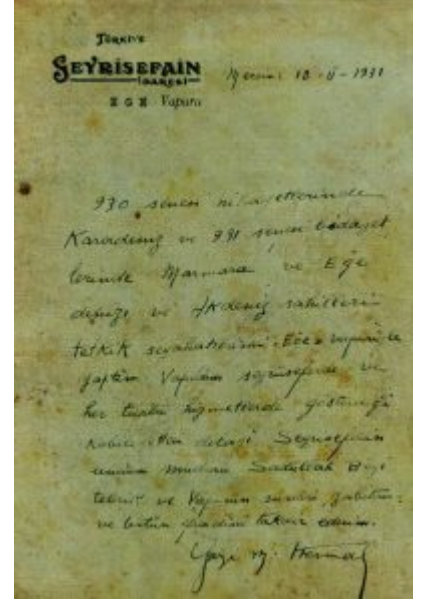 TÜRKİYE
SEYRİSEFAİN
İDARESİ
EGE Vapuru
Mersin: 10-II-1931
930 senesi nihayetlerinde
Karadeniz ve 931 senesi bidayet
lerinde Marmara ve Ege
denizi ve Akdeniz sahilleri
tetkik seyahatlerimi Ege vapuru ile
yaptım. Vapurun seyrüseferde ve
her türlü hizmetlerde gösterdiği
dolayı Seyrisefain
umum müdürü Sadullah Beyi
tebrik ve Vapurun süvari zabitan
ve bütün efradını takdir ederim.
Gazi M. Kemal